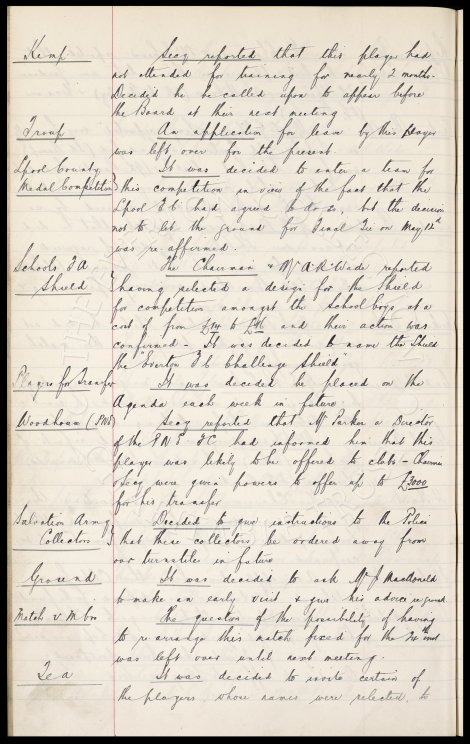 Kemp Secy reported that this player had
not attended for training for nearly 2 months.
Decided he be called upon to appear before
the Board at their next meeting
Troup An application for leave by this player
was left over for the present
Lpool County It was decided to enter a team for
Medal Competition this competition in view of the fact that the
Lpool F C had agreed to do so, but the decision
not to let the ground for Final Tie on May 12th
was re-affirmed.
Schools F A The Chairman & Mr A. R. Wade reported
Shield having selected a design for the Shield
for competition amongst the school boys at a
cost of from to and their action was
confirmed - It was decided to name the Shield
the "Everton F C Challenge Shield"
Players for Transfer It was decided be placed on the
Agenda each week in future
Woodhouse (PNE) Secy reported that Mr Parker a Director
of the P N E FC had informed him that this
player was likely to be offered to clubs - Chairman
& Secy were given powers to offer up to £3000
for his transfer
Salvation Army Decided to give instructions to the Police
Collectors that these collectors be ordered away from
our turnstiles in future
Ground It was decided to ask Mr J MacDonald
to make an early visit & give his advice re ground
Match v. M bro The question of the possibility of having
to re-arrange this match fixed for the inst
was left over until next meeting.
Tea It was decided to invite certain of
the players, whose names were selected, to